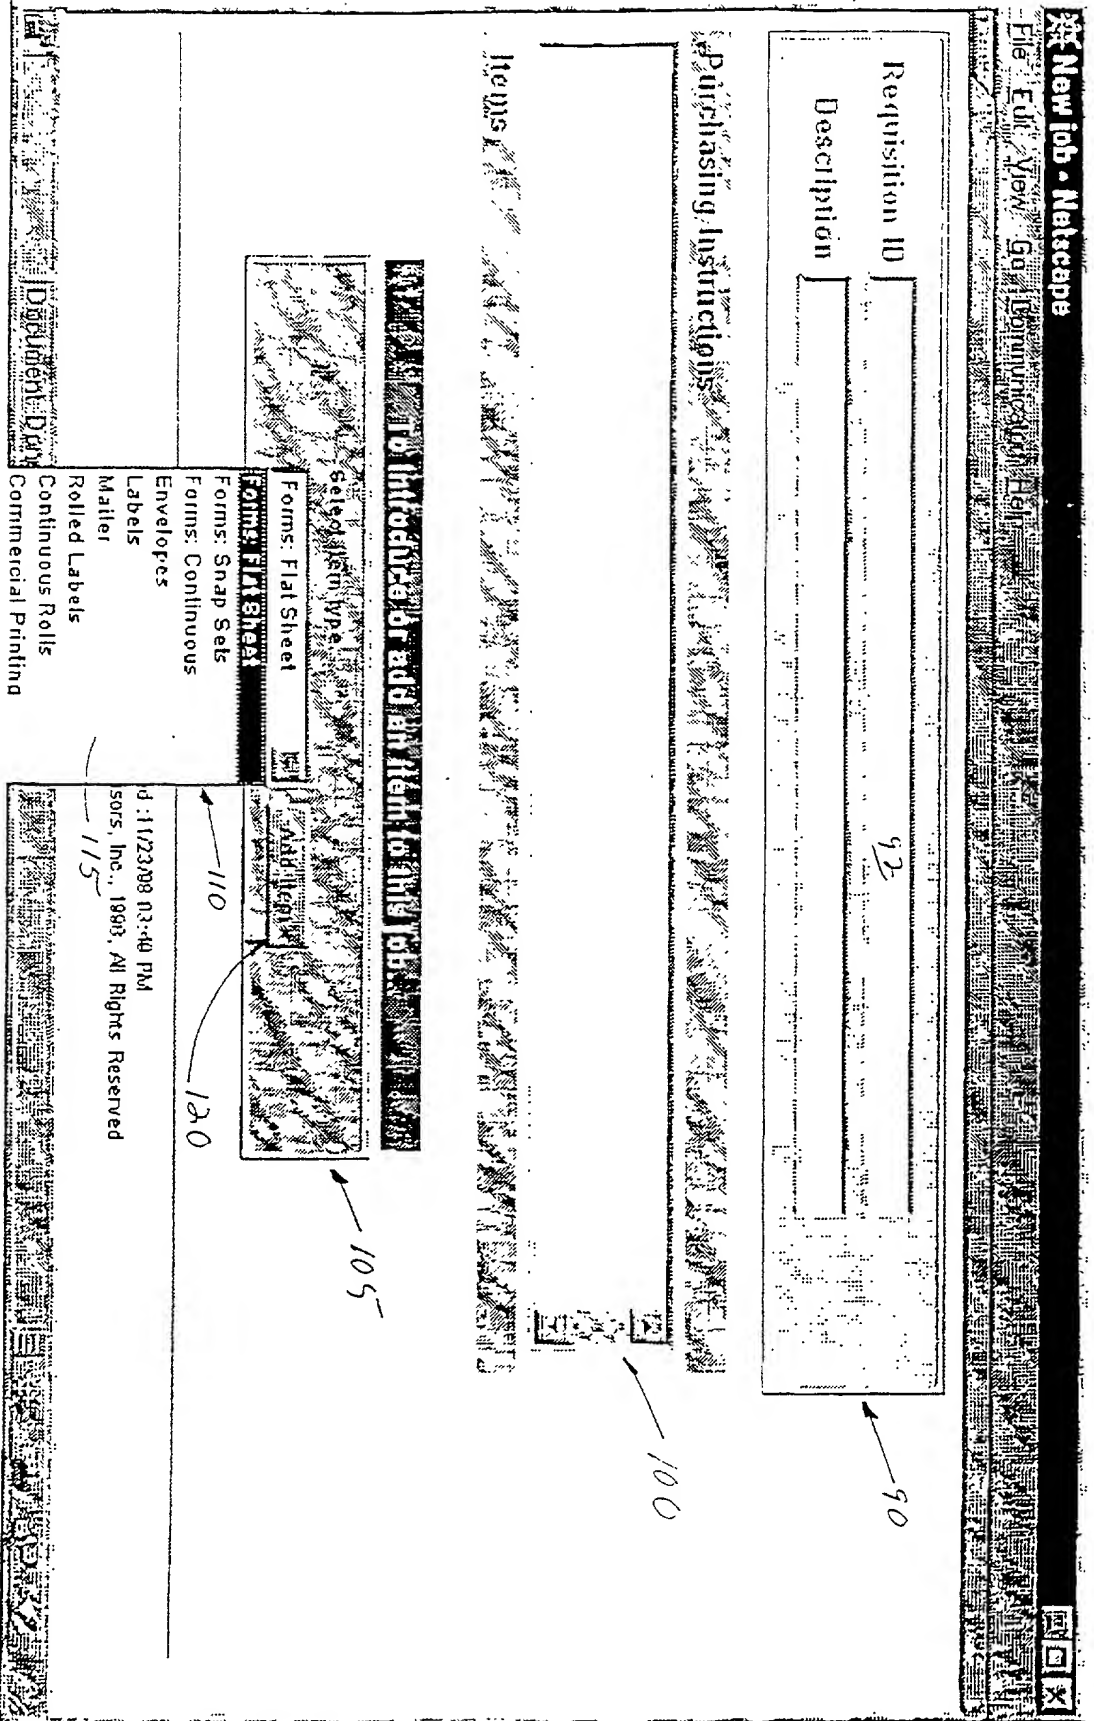 New job - Netscape
File Edit View Go Communicator Help
Requisition ID
92
Description
90
Purchasing Instructions
100
Items
To introduce or add an item to this job
105
Select item type
Forms: Flat Sheet
Add Item
Forms: Flat Sheet
Forms: Snap Sets
Forms: Continuous
Envelopes
Labels
Mailer
Rolled Labels
Continuous Rolls
Commercial Printing
110
120
115
d :11/23/98 03:40 PM
sors, Inc., 1998, All Rights Reserved
Document: Done